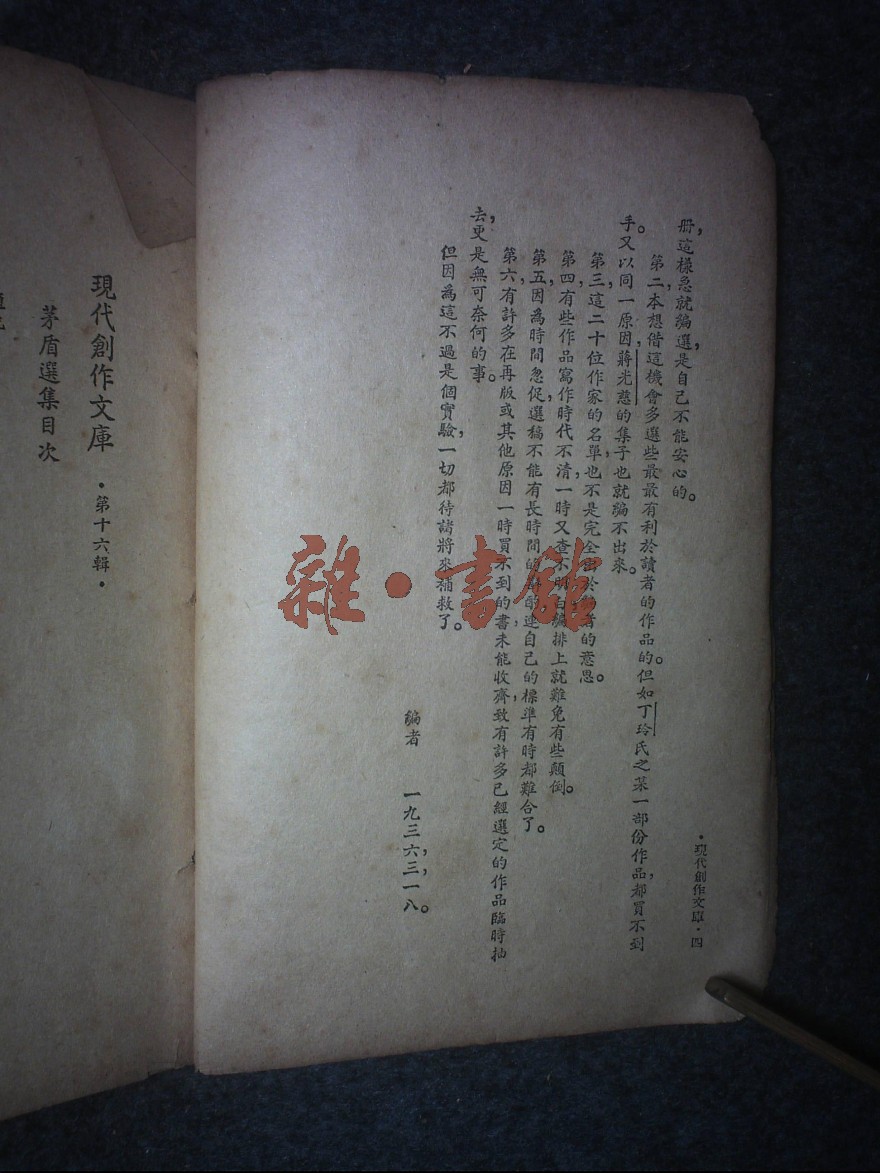 ·現代創作文庫·四
册，這樣急就編選，是自己不能安心的。
第二，本想借這機會多選些最最有利於讀者的作品的。但如丁玲氏之某一部份作品，都買不到
手。又以同一原因，蔣光慈的集子也就編不出來。
第三，這二十位作家的名單，也不是完全出於編者的意思。
第四，有些作品寫作時代不清，一時又查不明白，編排上就難免有些顛倒。
第五，因爲時間怱促，選稿不能有長時間的，連自己的標準有時都難合了。
第六，有許多在再版或其他原因一時買不到的書，未能收齊，致有許多已經選定的作品臨時抽
去，更是無可奈何的事。
但因爲這不過是個實驗，一切都待諸將來補救了。
編者 一九三六，三，一八。
現代創作文庫
·第十六輯·
茅盾選集目次
雜·書館